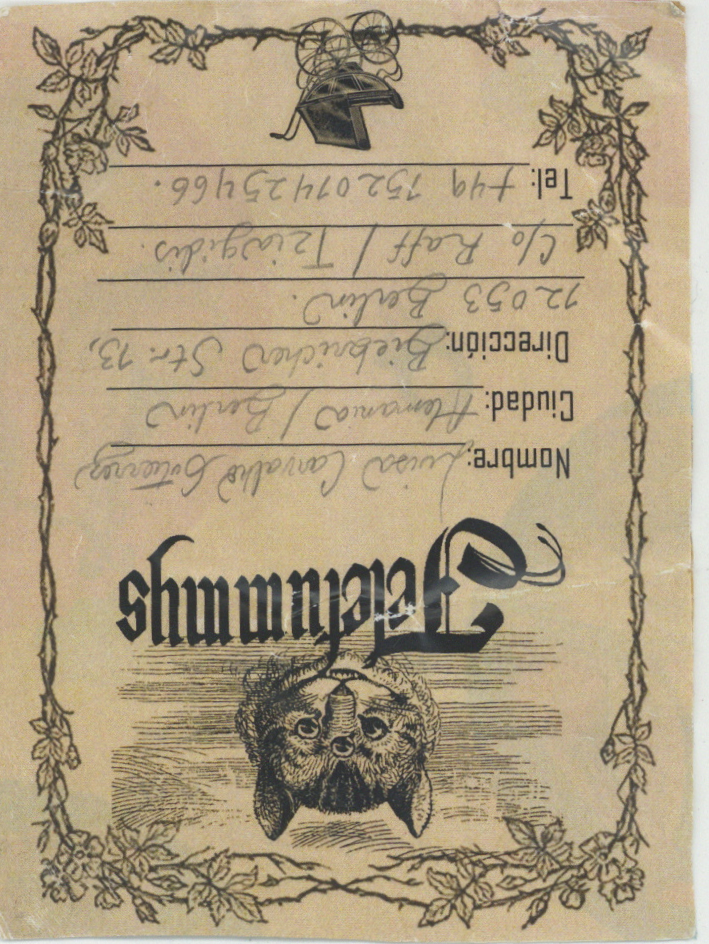 Teletummys
Nombre: Luisa Carvalho Gutierrez
Ciudad: Alemania / Berlin
Dirección: Biebricher Str. 13,
12053 Berlin.
c/o Raff /
Tel: +49 15201425466.